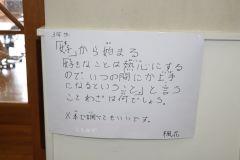 3年生
「好」から始まる
「好きなことは熱心にする
ので、いつの間にか上手
になるということ」と言う
ことわざは何でしょう。
※本で調べてもいいです。
楓花